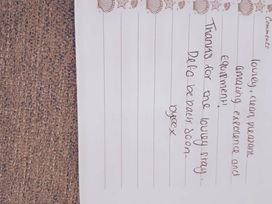 Comments
lovley, clean, pleasant
amazing experience and
equipment!
Thanks for the lovley stay..
Defo be back soon.